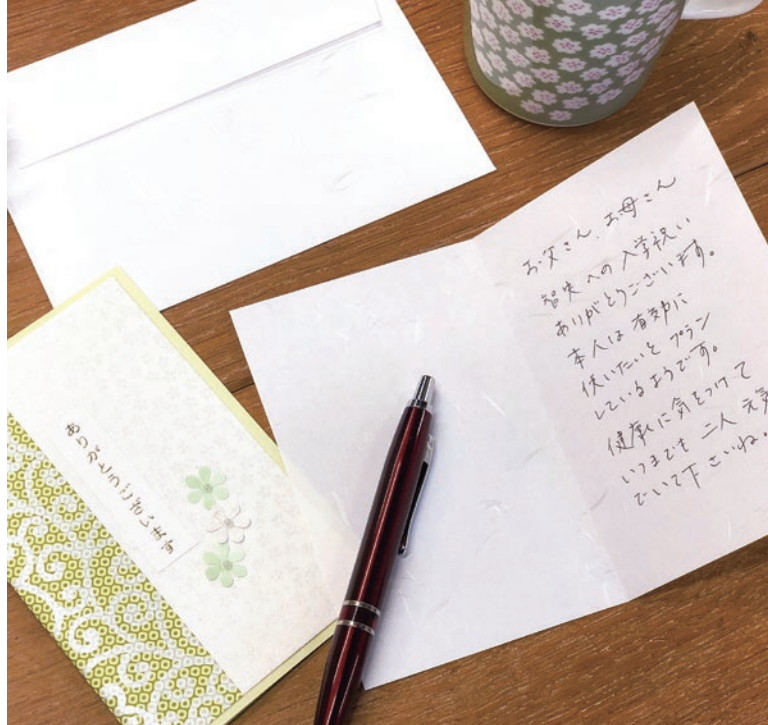 ありがとうございます
お父さん、お母さん
智咲への入学祝い
ありがとうございます。
本人は有効に
使いたいとプラン
しているようです。
健康に気をつけて
いつまでも二人元気
でいて下さいね。